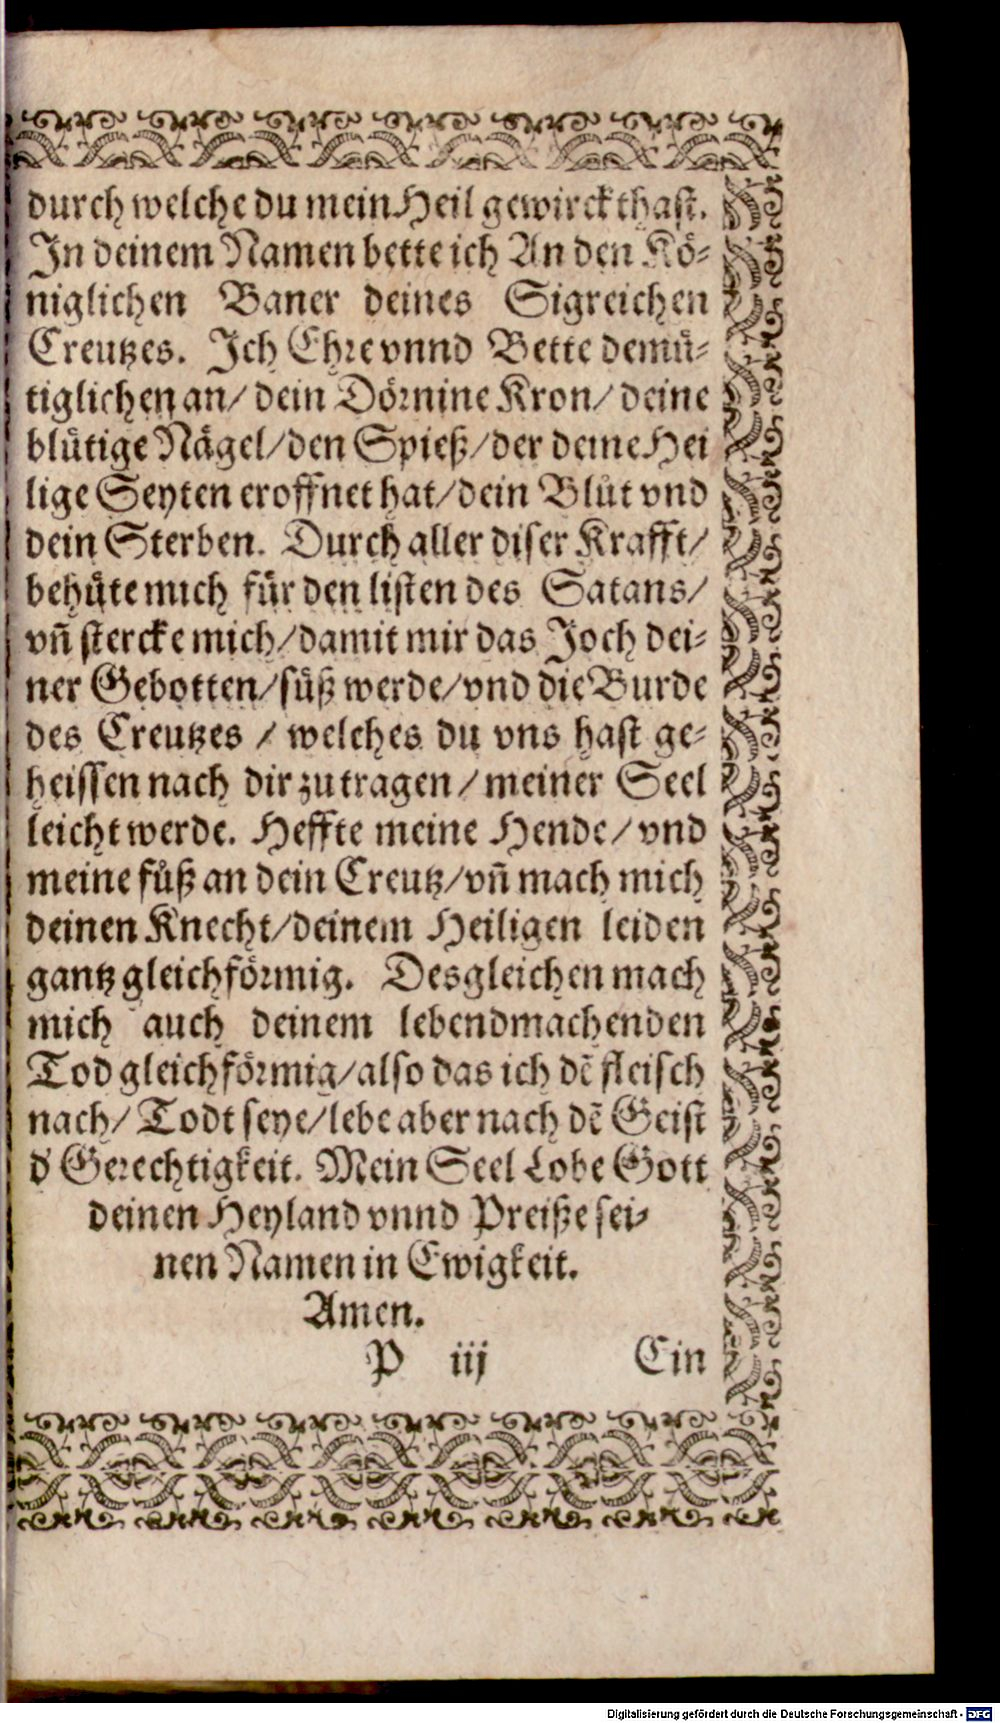 durch welche du mein Heil gewirckt hast.
In deinem Namen bette ich An den Kö-
niglichen Baner deines Sigreichen
Creutzes. Ich Ehre vnnd Bette demü-
tiglichen an/ dein Dörnine Kron/ deine
blütige Nägel/ den Spieß/ der deine Hei
lige Seyten eroffnet hat/ dein Blůt vnd
dein Sterben. Durch aller diser Krafft/
behüte mich für den listen des Satans/
vñ stercke mich/ damit mir das Joch dei-
ner Gebotten/ süß werde/ vnd die Burde
des Creutzes / welches du vns hast ge-
heissen nach dir zu tragen/ meiner Seel
leicht werde. Heffte meine Hende/ vnd
meine fůß an dein Creutz/ vñ mach mich
deinen Knecht/ deinem Heiligen leiden
gantz gleichförmig. Desgleichen mach
mich auch deinem lebendmachenden
Tod gleichförmig/ also das ich dẽ fleisch
nach/ Todt seye/ lebe aber nach dẽ Geist
d' Gerechtigkeit. Mein Seel Lobe Gott
deinen Heyland vnnd Preiße sei-
nen Namen in Ewigkeit.
Amen.
P iij Ein
Digitalisierung gefördert durch die Deutsche Forschungsgemeinschaft - DFG